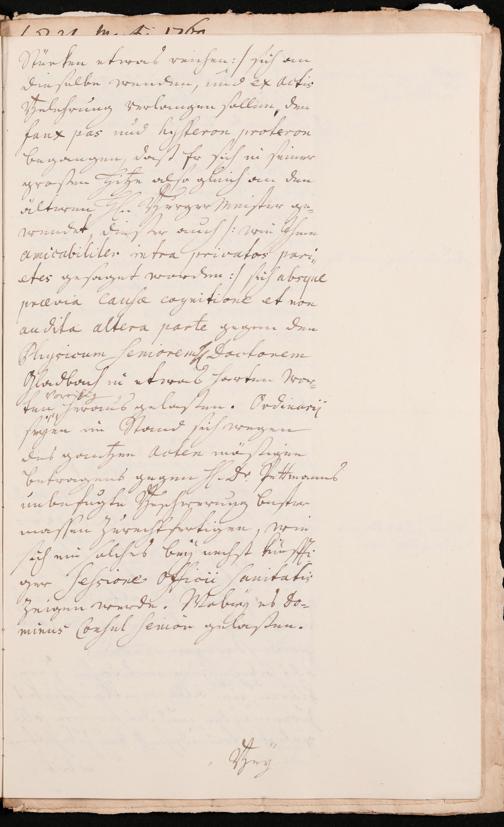 Stücken etwas reichen :/ sich an
dieselbe wenden, und ex actis
Belehrung verlangen sollen, den
faux pas und hysteron proteron
begangen, daß Er sich in seiner
großen Hitze also gleich an den
älteren H. Burger Meister ge-
wendet, dieser auch /: wie Ihme
amicabiliter intra privatos pari-
etes gesaget worden :/ sich absque
prævia causæ cognitione et non
audita altera parte gegen den
Physicum seniorem Doctorem
Gladbach in etwas harten Wor-
ten heraus gelaßen. Ordinarij
seyen im Stand sich wegen
des gantzen Acten mäsigen
betragens gegen H. Dr. Pettmanns
unbefugte Beschwerung bester
massen zu rechtfertigen, wie
sich ein solches bey nechst künffti-
ger Sessione Officii Sanitatis
zeigen werde. Wobey es Do-
minus Consul senior gelaßen.
Bey